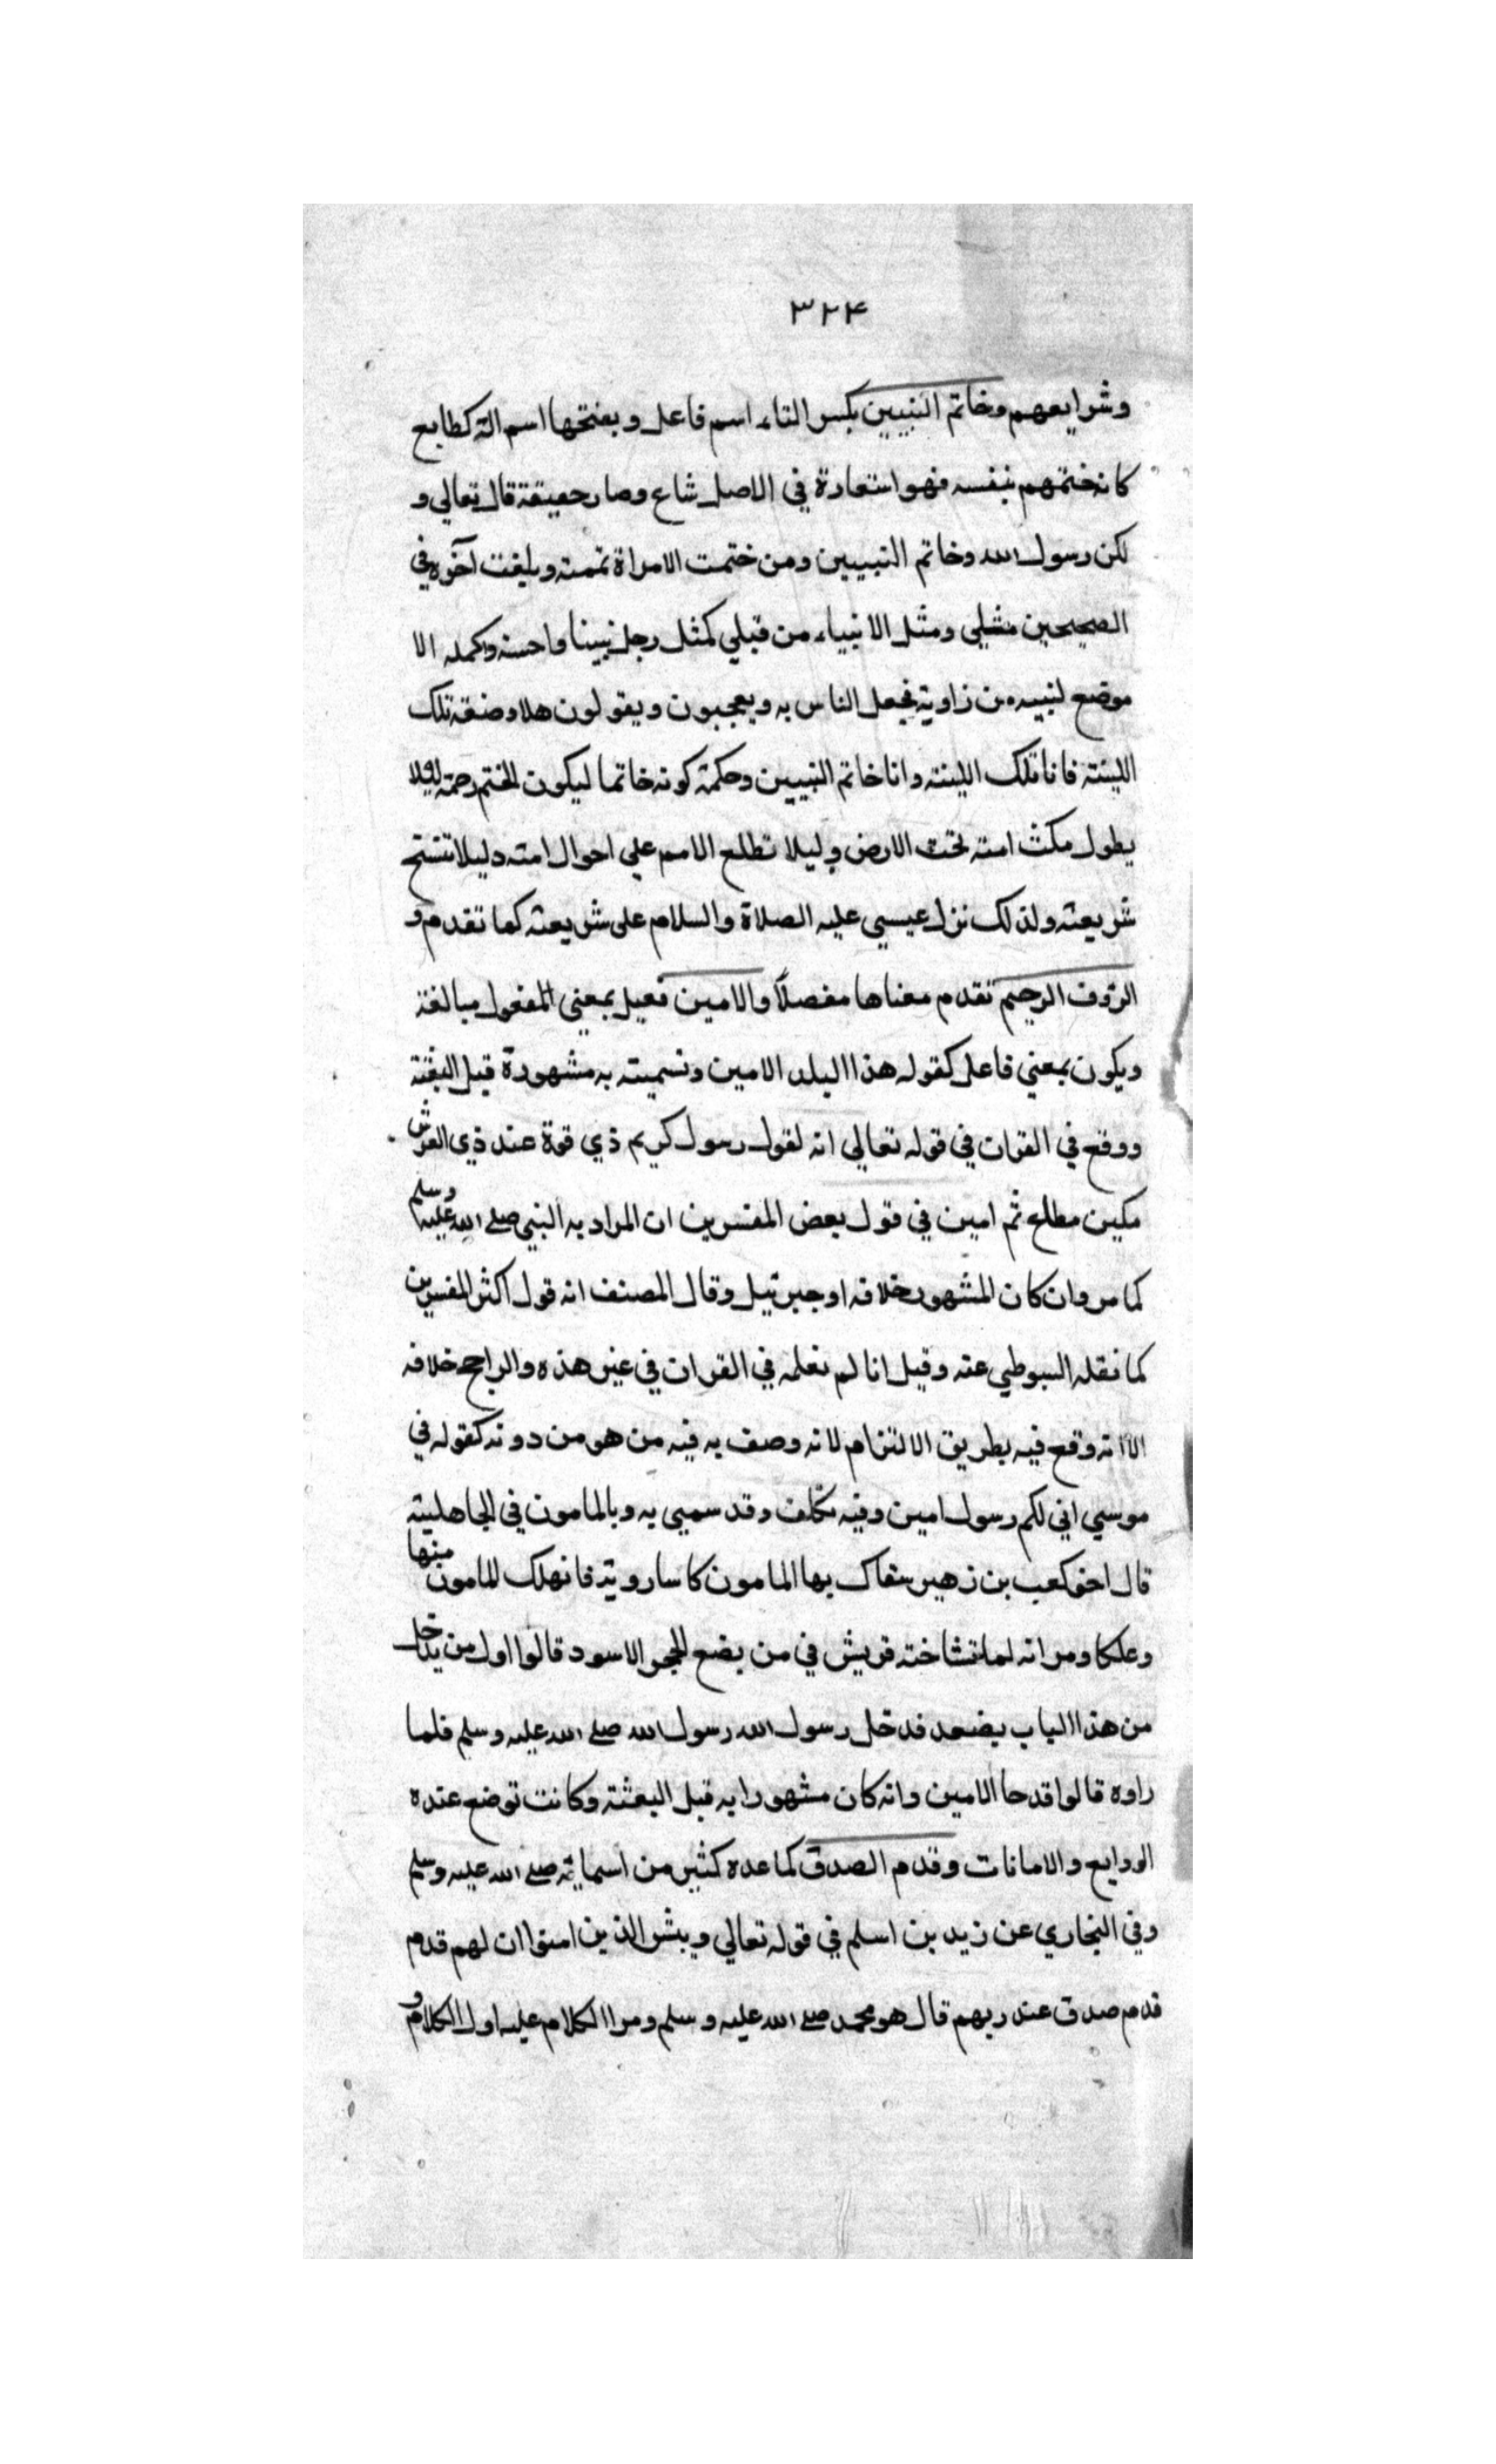 ٣٢٤
وشرايعهم وخاتم النبيين بكسر التاء اسم فاعل وبفتحها اسم الة كطابع
كانه ختمهم بنفسه فهو استعارة في الاصل شاع وصار حقيقة قال تعالي و
لكن رسول الله وخاتم النبيين ومن ختمت الامراة تممته وبلغت آخره في
الصحيحين مثلي ومثل الانبياء من قبلي كمثل رجل بنينا واحسنه وكمله الا
موضع لنبيه من زاوية فجعل الناس به ويعجبون ويقولون هلا وضقة تلك
اللبنته فانا تلك اللبنته وانا خاتم النبيين وحكمة كونه خاتما ليكون الختم رحمة لئيلا
يطول مكث امته تحت الارض وليلا تطلع الامم علي احوال امته وليلا تنتسخ
شريعته ولذلك نزل عيسي عليه الصلاة والسلام على شريعته كما تقدم و
الرؤف الرحيم تقدم معناها مفصلا والامين فعيل بمعني المفعول مبالغة
ويكون بمعني فاعل كقوله هذا البلد الامين وتسميته به مشهورة قبل البعثة
ووقع في القران في قوله تعالي انه لقول رسول كريم ذي قوة عند ذي العرش
مكين مطاع ثم امين في قول بعض المفسرين ان المراد به النبي صلے الله عليه وسلم
كما مر وان كان المشهور خلافه او جبرئيل وقال المصنف انه قول اكثر المفسرين
كما نقله السيوطي عنه وقيل انا لم نعلمه في القران في غير هذه والراجح خلافه
الا انه وقع فيه بطريق الالتزام لانه وصف به فيه من هو من دونه كقوله في
موسي اني لكم رسول امين وفيه تكلف وقد سمي به وبالمامون في الجاهلية
قال اخو كعب بن زهير سقاك بها المامون كاسا روية فانهلك المامون منها
وعلكا ومر انه لما تشاخته قريش في من يضع الحجر الاسود قالوا اول من يدخل
من هذا الباب يضعه فدخل رسول الله رسول الله صلے الله عليه وسلم فلما
راوه قالوا قد جا الامين وانه كان مشهورا به قبل البعثة وكانت توضع عنده
الودايع والامانات وقدم الصدق كما عده كثير من اسمائه صلے الله عليه وسلم
وفي البخاري عن زيد بن اسلم في قوله تعالي وبشر الذين امنوا ان لهم قدم
قدم صدق عند ربهم قال هو محمد صلے الله عليه وسلم ومر الكلام عليه اول الكلام و